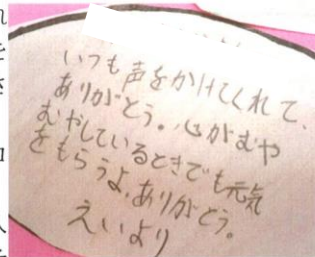 いつも声をかけてくれて、
ありがとう。心がむや
むやしているときでも元気
をもらうよ。ありがとう。
えいより